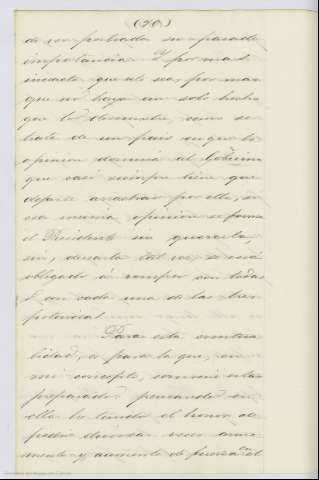 (20)
de corporada su pasada
importancia. Y por mas
inecsacto que ello sea, por mas
que no haya un solo hecho
que lo demuestre, como se
trata de un pais en que la
opinion domina al Gobierno
que casi siempre tiene que
dejarse arrastrar por ella, si
esa misma opinion se forma
el Presidente sin quererlo,
sin, desearlo tal vez, se verá
obligado á romper con todas
ó con cada una de las tres
potencias.
Para esta eventua
lidad, ó para la que, en
mi concepto, conviene estar
preparados pensando en
ella he tenido el honor de
pedir diversas veces arma
mento y aumento de fuerza en el